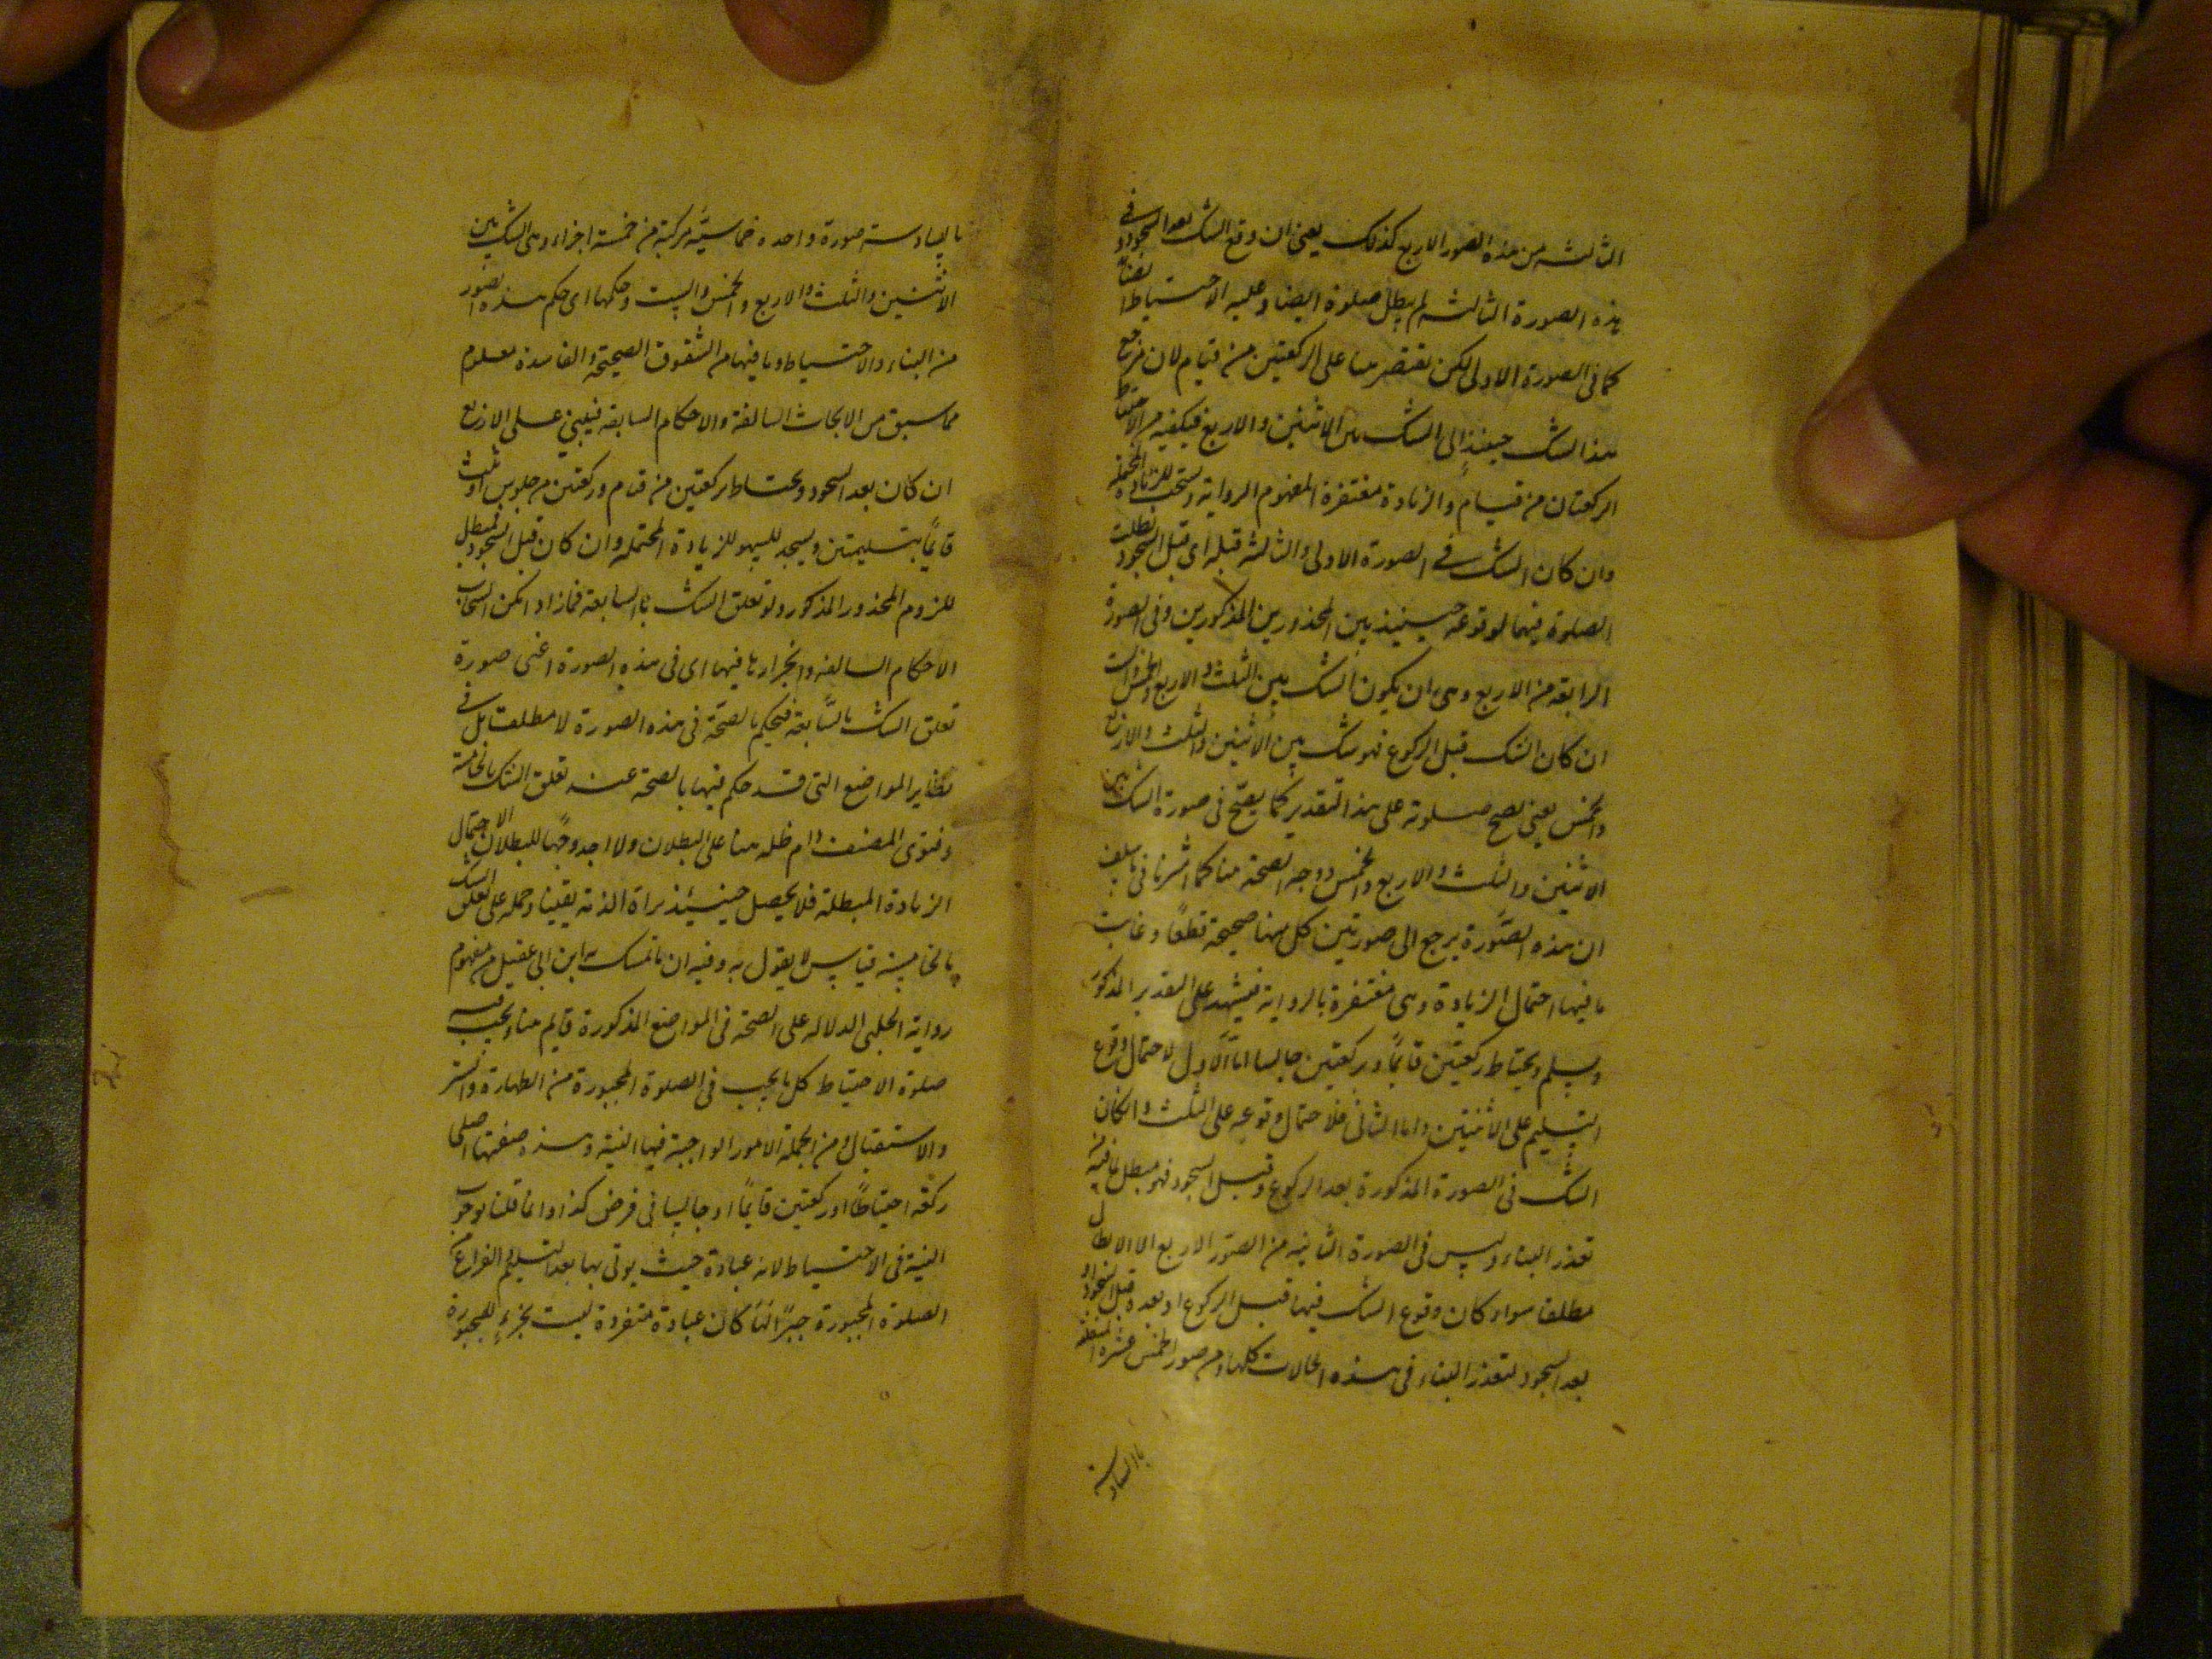 الثالثه من هذه الصور الاربع كذلك يعنى ان وقع الشك بعد السجود فى
هذه الصورة الثالثه لم يبطل صلوة ايضا وعليه الاحتياط
كما فى الصورة الاولى لكن تقتصر هنا على الركعتين من قيام لان مرجع
هذا الشك حينئذ الى الشك بين الاثنين والاربع فيكفيه من الاحتياط
الركعتان من قيام والزيادة مغتفرة لمفهوم الرواية ويستحب للزيادة المحتملة
وان كان الشك فى الصورة الاولى والثالثه قبله اى قبل السجود بطلت
الصلوة فيهما لوقوعه حينئذ بين المحذورين المذكورين وفى الصورة
الرابعة من الاربع وهى ان يكون الشك بين الثلث والاربع والخمس والست
ان كان الشك قبل الركوع فهو شك بين الاثنين والثلث والاربع
والخمس يعنى يصح صلوته على هذا التقدير كما يصح فى صورة الشك بين
الاثنين والثلث والاربع والخمس ووجه الصحة هنا كما اشرنا فى ما سلف
ان هذه الصورة يرجع الى صورتين كل منها صحيحة قطعا وغايت
ما فيها احتمال الزيادة وهى مغتفرة بالرواية فيتشهد على التقدير المذكور
ويسلم ويحتاط ركعتين قايما وركعتين جالسا اما الاول لاحتمال وقوع
التسليم على الاثنتين واما الثانى فلاحتمال وقوعه على الثلث وان كان
الشك فى الصورة المذكورة بعد الركوع وقبل السجود فهو مبطل لما فيه من
تعذر البناء وليس فى الصورة الثانيه من الصور الاربع الا الابطال
مطلقا سواء كان وقوع الشك فيها قبل الركوع او بعده قبل السجود او
بعد السجود لتعذر البناء فى هذه الحالات كلها ومن صور الخمس عشرة المتعلقة
بالسادسة
بالسادسة صورة واحده خماسية مركبة من خمسة اجزاء وهى الشك بين
الاثنين والثلث والاربع والخمس والست وحكمها اى حكم هذه الصور
من البناء والاحتياط وما فيها من الشقوق الصحيحة والفاسدة معلوم
مما سبق من الابحاث السالفة والاحكام السابقه فيبنى على الاربع
ان كان بعد السجود ويحتاط ركعتين من قيام وركعتين من جلوس او ثلث
قايما بتسليمتين ويسجد للسهو للزيادة المحتملة وان كان قبل السجود يبطل
للزوم المحذور المذكور ولو تعلق الشك بالسابعة فمازاد امكن انسحاب
الاحكام السالفه وانجرارها فيها اى فى هذه الصورة اعنى صورة
تعلق الشك بالسابعة فيحكم بالصحة فى هذه الصورة لا مطلقا بل فى
نظاير المواضع التى قد حكم فيها بالصحة عند تعلق الشك بالخامسة
وفتوى المصنف دام ظله هنا على البطلان ولا اجد وجها للبطلان الا احتمال
الزيادة المبطلة فلا يحصل حينئذ براة الذمة يقينا وحمله على تعلق الشك
بالخامسة قياس لا يقول به وفيه ان ما تمسك به ابن ابى عقيل من مفهوم
رواية الحلبى الدلاله على الصحة فى المواضع المذكورة قايم هنا ويجب فى
صلوة الاحتياط كل ما يجب فى الصلوة المجبورة من الطهارة والستر
والاستقبال ومن الجملة الامور الواجبة فيها النية وهذه صفتها اصلى
ركعة احتياطا او ركعتين قايما او جالسا فى فرض كذا وانما قلنا بوجوب
النية فى الاحتياط لانه عبادة حيث يوتى بها بعد التسليم والفراغ من
الصلوة المجبورة جبرا لها كان عبادة منفردة ليست بجزء للمجبورة